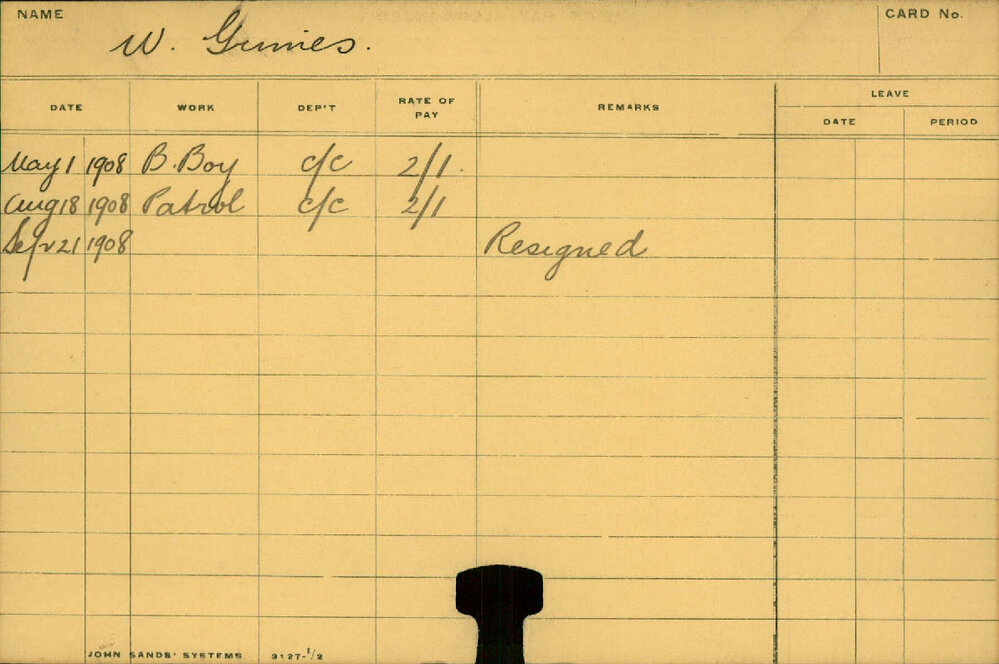 NAME W. Grimes. CARD No.
DATE WORK DEP'T RATE OF PAY REMARKS LEAVE
DATE PERIOD
May 1 1908 B. Boy c/c 2/1.
Aug 18 1908 Patrol c/c 2/1
Sep 21 1908 Resigned
JOHN SANDS' SYSTEMS 3127-1/2